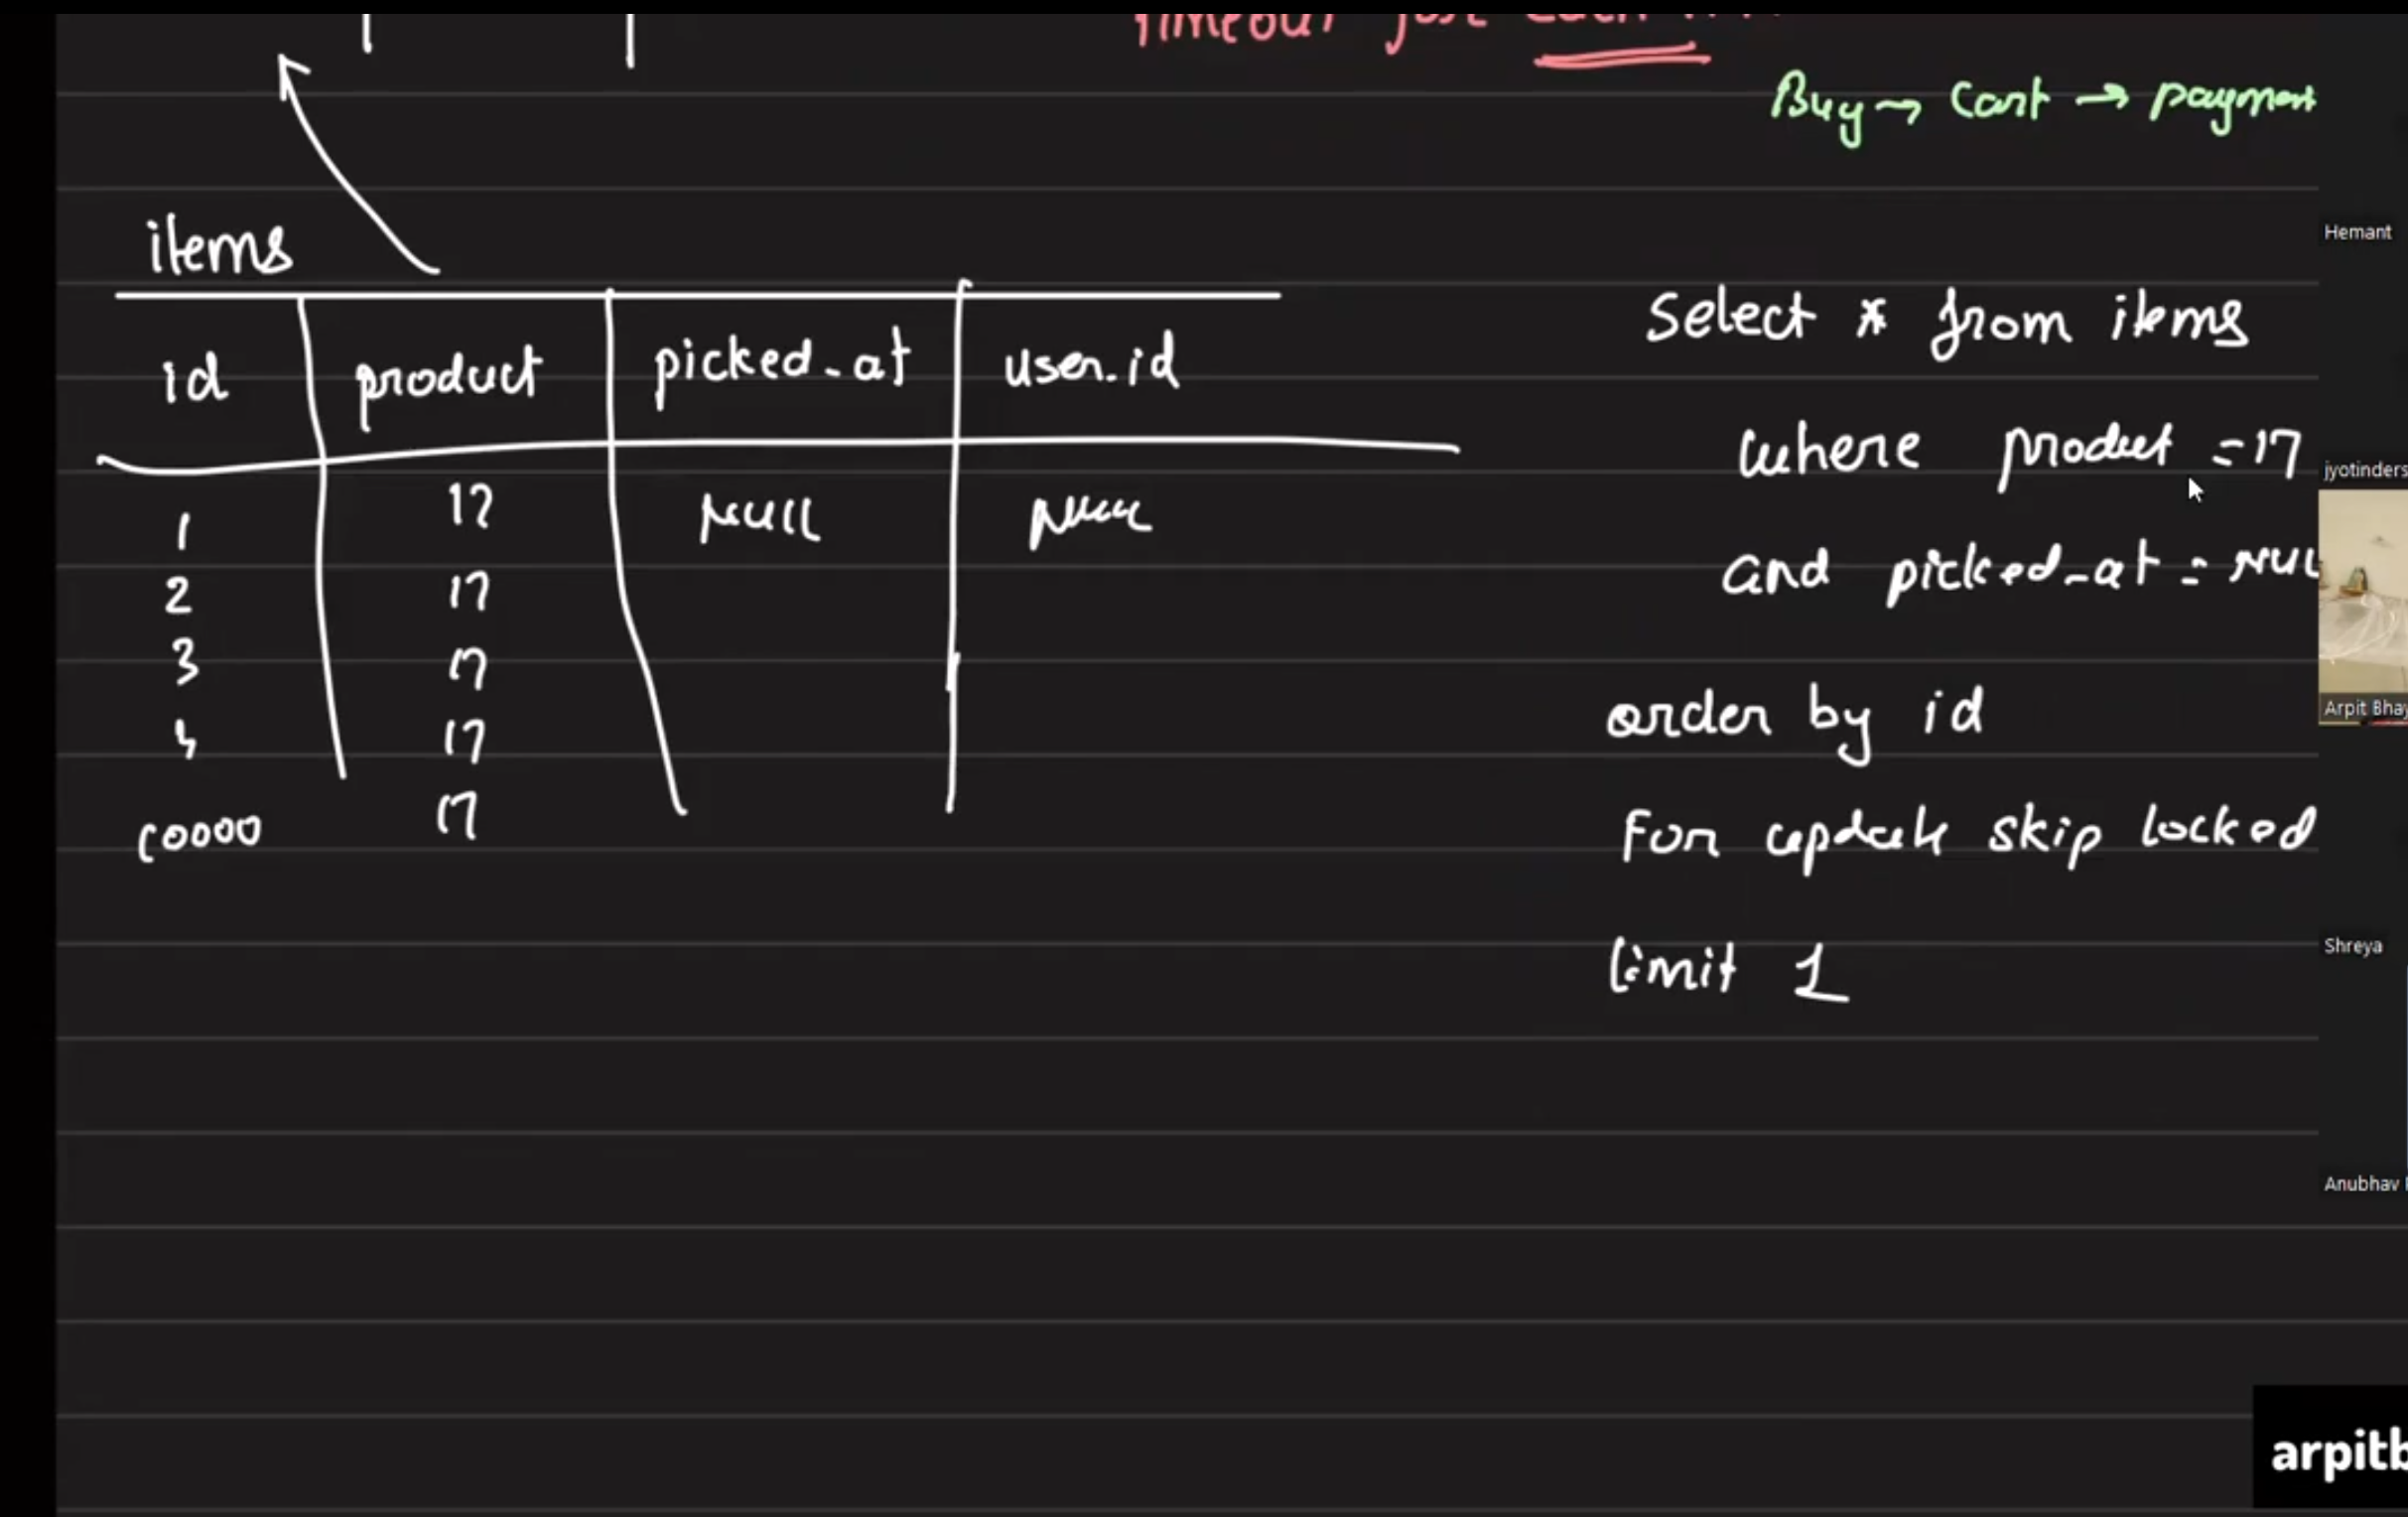 Timeout just each
Buy → Cart → payment
items
id product picked_at user_id
1 17 NULL NULL
2 17
3 17
4 17
10000 17
Select * from items
where product = 17
and picked_at = NUL
order by id
For update skip locked
limit 1
Hemant
jyotinders
Arpit Bhay
Shreya
Anubhav
arpitb